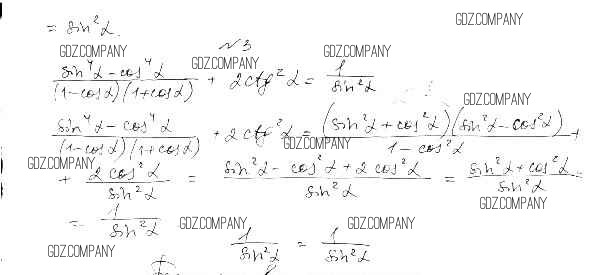 = sin²α.
GDZ.COMPANY
N3
GDZ.COMPANY GDZ.COMPANY
(sin⁴α - cos⁴α)/((1-cosα)(1+cosα)) + 2ctg²α = 1/sin²α
GDZ.COMPANY
(sin⁴α - cos⁴α)/((1-cosα)(1+cosα)) + 2ctg²α = ((sin²α + cos²α)(sin²α - cos²α))/(1 - cos²α) +
GDZ.COMPANY
GDZ.COMPANY
+ (2cos²α)/(sin²α) = (sin²α - cos²α + 2cos²α)/(sin²α) = (sin²α + cos²α)/(sin²α) =
GDZ.COMPANY
= 1/sin²α
GDZ.COMPANY GDZ.COMPANY
1/sin²α = 1/sin²α
GDZ.COMPANY